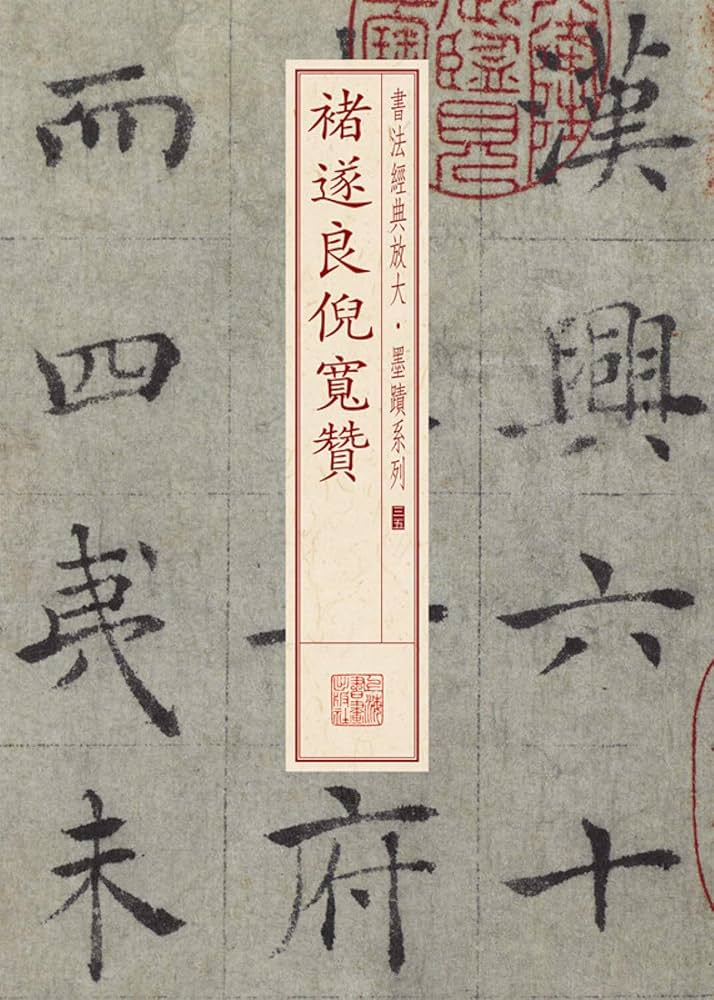 漢興六十
書法經典放大·墨蹟系列 三五
褚遂良倪寬贊
上海書畫出版社
府
而四夷未